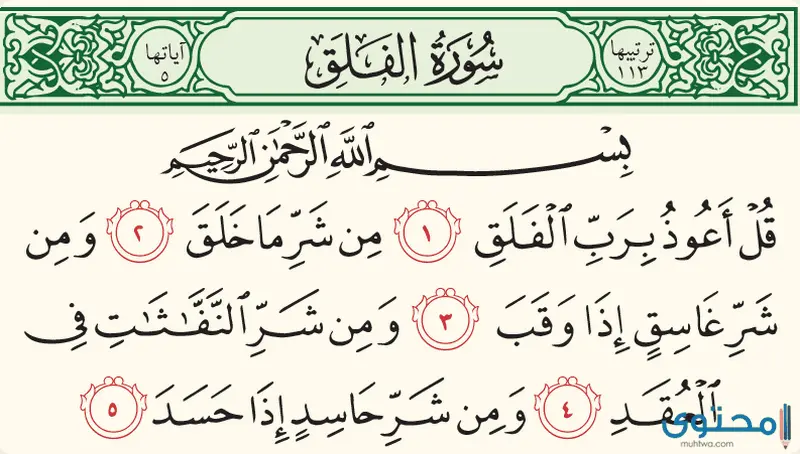 ترتيبها
١١٣
سُورَةُ الفَلَقِ
آياتها
٥
بِسْمِ ٱللَّهِ ٱلرَّحْمَٰنِ ٱلرَّحِيمِ
قُلْ أَعُوذُ بِرَبِّ ٱلْفَلَقِ ١ مِن شَرِّ مَا خَلَقَ ٢ وَمِن
شَرِّ غَاسِقٍ إِذَا وَقَبَ ٣ وَمِن شَرِّ ٱلنَّفَّٰثَٰتِ فِى
ٱلْعُقَدِ ٤ وَمِن شَرِّ حَاسِدٍ إِذَا حَسَدَ ٥
محتوى
muhtwa.com